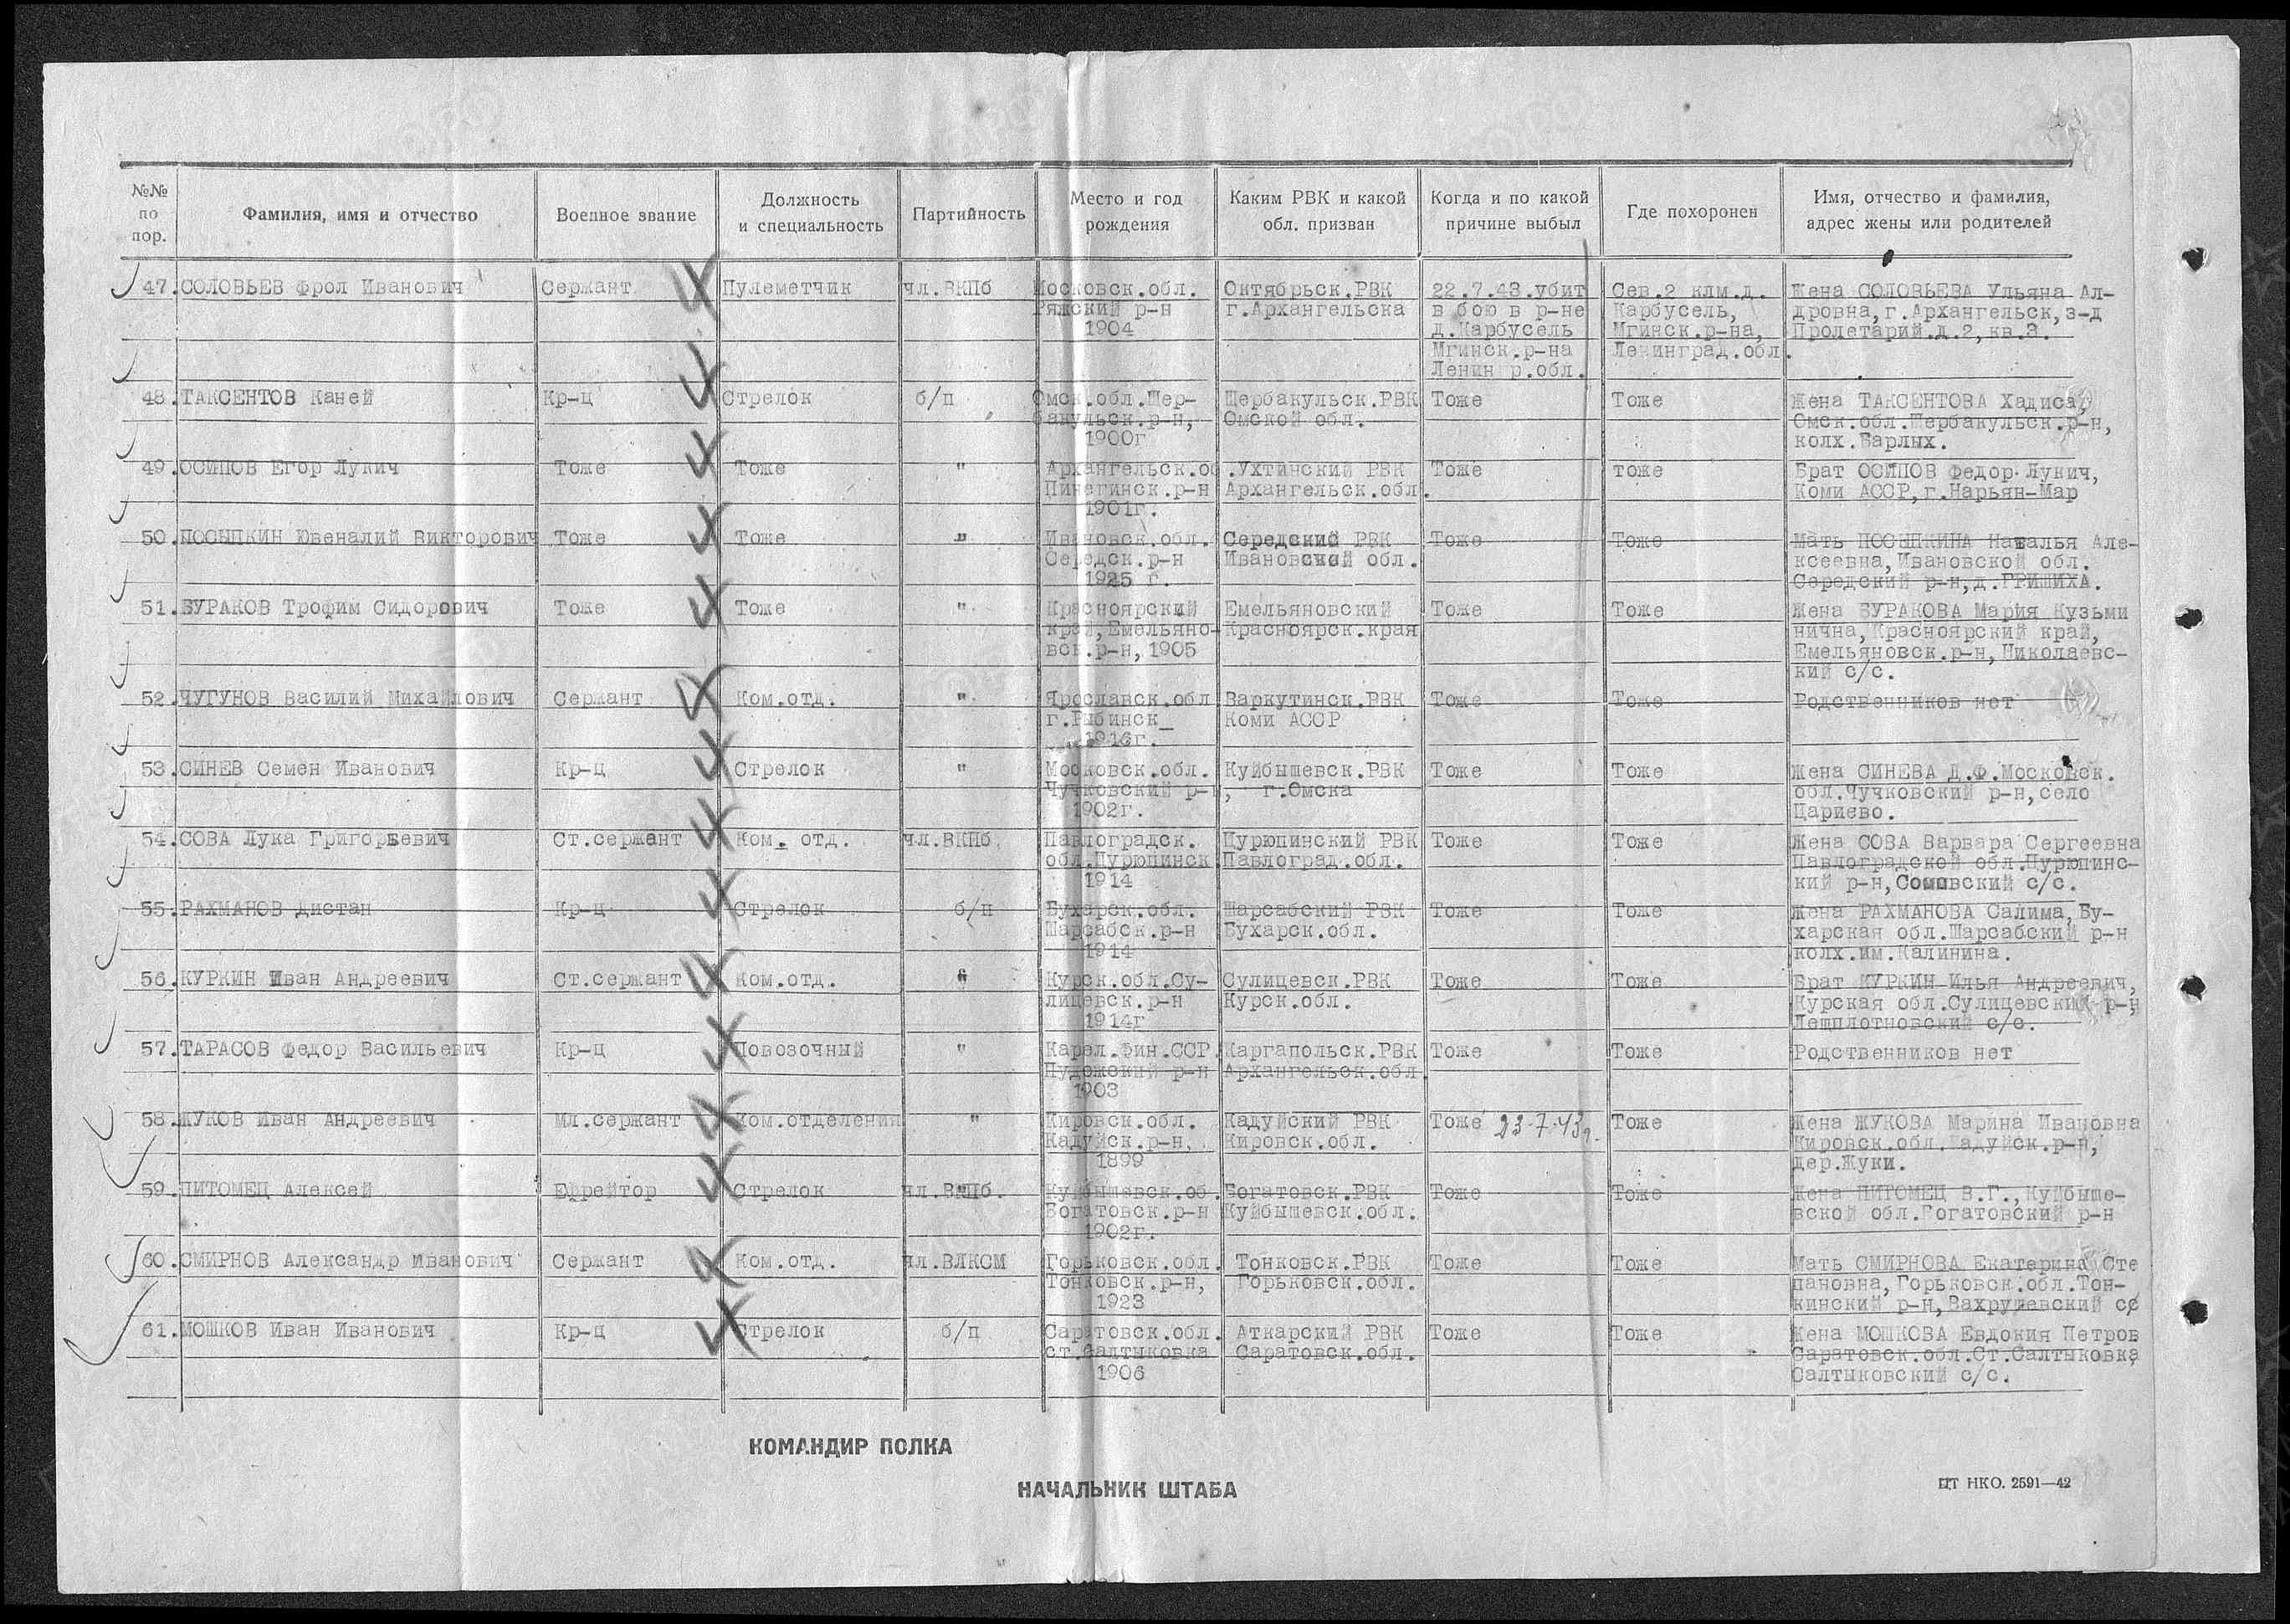 №№ по пор.
Фамилия, имя и отчество
Военное звание
Должность и специальность
Партийность
Место и год рождения
Каким РВК и какой обл. призван
Когда и по какой причине выбыл
Где похоронен
Имя, отчество и фамилия, адрес жены или родителей
47. СОЛОВЬЕВ Фрол Иванович Сержант Пулеметчик чл.ВКПб Московск.обл. Октябрьск.РВК 22.7.43.убит Сев.2 клм.д. Жена СОЛОВЬЕВА Ульяна Ал-
Ряжский р-н г.Архангельска в бою в р-не Карбусель, дровна,г.Архангельск,з-д
1904 д.Карбусель Мгинск.р-на, Пролетарий.д.2,кв.3.
Мгинск.р-на Ленинград.обл.
Ленингр.обл.
48. ТАКСЕНТОВ Каней Кр-ц Стрелок б/п Омск.обл.Шер- Щербакульск.РВК Тоже Тоже Жена ТАКСЕНТОВА Хадиса,
бакульск.р-н, Омской обл. Омск.обл.Шербакульск.р-н,
1900г колх.Барлых.
49. ОСИПОВ Егор Лукич Тоже Тоже " Архангельск.о .Ухтинский РВК Тоже тоже Брат ОСИПОВ Федор Лукич,
Пинегинск.р-н Архангельск.обл. Коми АССР,г.Нарьян-Мар
1901г.
50. ПОСЫПКИН Ювеналий Викторович Тоже Тоже " Ивановск.обл. Середский РВК Тоже Тоже Мать ПОСЫПКИНА Наталья Але-
Середск.р-н Ивановской обл. ксеевна,Ивановской обл.
1925 г. Середский р-н,д.ГРИШИХА.
51. БУРАКОВ Трофим Сидорович Тоже Тоже " Красноярский Емельяновский Тоже Тоже Жена БУРАКОВА Мария Кузьми
край,Емельяно- Красноярск.края нична,Красноярский край,
вск.р-н,1905 Емельяновск.р-н,Николаевс-
кий с/с.
52. ЧУГУНОВ Василий Михайлович Сержант Ком.отд. " Ярославск.обл Варкутинск.РВК Тоже Тоже Родственников нет
г.Рыбинск Коми АССР
1916г.
53. СИНЕВ Семен Иванович Кр-ц Стрелок " Московск.обл. Куйбышевск.РВК Тоже Тоже Жена СИНЕВА Д.Ф.Московск.
Чучковский р-н, г.Омска обл.Чучковский р-н,село
1902г. Цариево.
54. СОВА Лука Григорьевич Ст.сержант Ком. отд. чл.ВКПб. Павлоградск. Цурюпинский РВК Тоже Тоже Жена СОВА Варвара Сергеевна
обл.Цурюпинск Павлоград.обл. Павлоградской обл.Цурюпинс-
1914 кий р-н, с/с.
55. РАХМАНОВ Дистан Кр-ц Стрелок б/п Бухарск.обл. Шарсабский РВК Тоже Тоже Жена РАХМАНОВА Салима,Бу-
Шарсабск.р-н Бухарск.обл. харская обл.Шарсабский р-н
1914 колх.им.Калинина.
56. КУРКИН Иван Андреевич Ст.сержант Ком.отд. " Курск.обл.Су- Сулицевск.РВК Тоже Тоже Брат КУРКИН Илья Андреевич,
лицевск.р-н Курск.обл. Курская обл.Сулицевский р-н
1914г Лещплотновский с/с.
57. ТАРАСОВ Федор Васильевич Кр-ц Повозочный " Карел.Фин.ССР. Каргапольск.РВК Тоже Тоже Родственников нет
Пудожский р-н Архангельск.обл.
1903
58. ЖУКОВ Иван Андреевич Мл.сержант Ком.отделения " Кировск.обл. Кадуйский РВК Тоже 23.7.43г. Тоже Жена ЖУКОВА Марина Ивановна
Кадуйск.р-н, Кировск.обл. Кировск.обл.Кадуйск.р-н,
1899 дер.Жуки.
59. ПИТОМЕЦ Алексей Ефрейтор Стрелок чл.ВКПб. Куйбышевск.об. Богатовск.РВК Тоже Тоже Жена ПИТОМЕЦ В.Г.,Куйбыше-
Богатовск.р-н Куйбышевск.обл. вской обл.Богатовский р-н
1902г.
60. СМИРНОВ Александр Иванович Сержант Ком.отд. чл.ВЛКСМ Горьковск.обл. Тонковск.РВК Тоже Тоже Мать СМИРНОВА Екатерина Сте
Тонковск.р-н, Горьковск.обл. пановна,Горьковск.обл.Тон-
1923 кинский р-н,Вахрушевский с/с
61. МОШКОВ Иван Иванович Кр-ц Стрелок б/п Саратовск.обл. Аткарский РВК Тоже Тоже Жена МОШКОВА Евдокия Петров
ст.Салтыковка Саратовск.обл. Саратовск.обл.Ст.Салтыковка
1906 Салтыковский с/с.
КОМАНДИР ПОЛКА
НАЧАЛЬНИК ШТАБА
ЦТ НКО. 2591—42